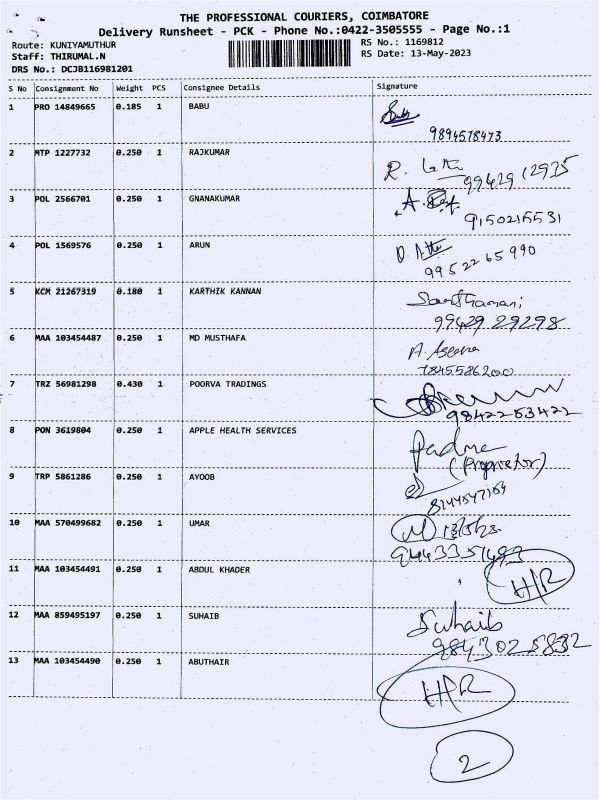 THE PROFESSIONAL COURIERS, COIMBATORE
Delivery Runsheet - PCK - Phone No.:0422-3505555 - Page No.:1
Route: KUNIYAMUTHUR
RS No.: 1169812
Staff: THIRUMAL.N
RS Date: 13-May-2023
DRS No.: DCJB116981201
S No Consignment No Weight PCS Consignee Details Signature
1 PRO 14849665 0.185 1 BABU
9894578473
2 MTP 1227732 0.250 1 RAJKUMAR R.
9942912975
3 POL 2566701 0.250 1 GNANAKUMAR A.
9150216531
4 POL 1569576 0.250 1 ARUN
9952265990
5 KCM 21267319 0.180 1 KARTHIK KANNAN Santhamani
99429 29298
6 MAA 103454487 0.250 1 MD MUSTHAFA A. Aseena
7845586200
7 TRZ 56981298 0.430 1 POORVA TRADINGS
9842253422
8 PON 3619804 0.250 1 APPLE HEALTH SERVICES Padma
(Proprietor)
9 TRP 5861286 0.250 1 AYOOB
8144547164
10 MAA 570499682 0.250 1 UMAR
11 MAA 103454491 0.250 1 ABDUL KHADER H/R
12 MAA 859495197 0.250 1 SUHAIB Suhaib
9843025832
13 MAA 103454490 0.250 1 ABUTHAIR
H/R
2